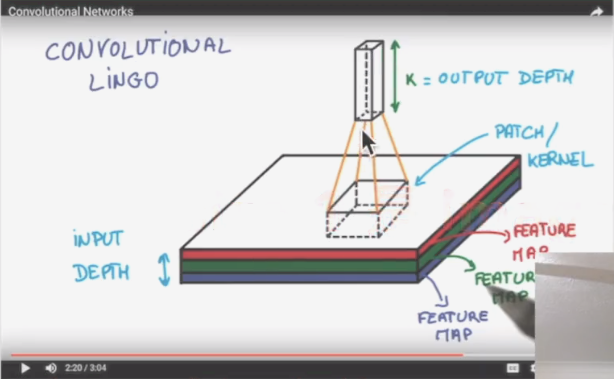 Convolutional Networks
CONVOLUTIONAL
LINGO
K = OUTPUT DEPTH
PATCH/
KERNEL
INPUT
DEPTH
FEATURE
MAP
FEATURE
MAP
FEATURE
MAP
2:20 / 3:04